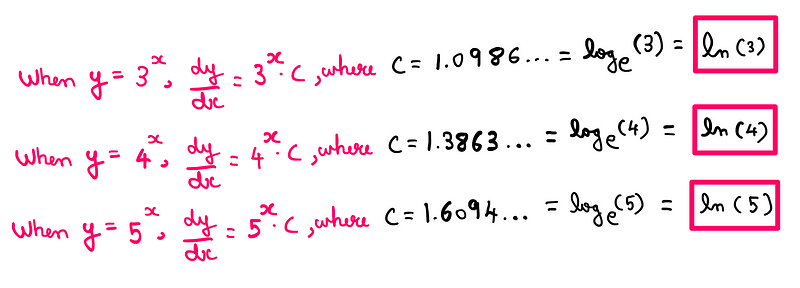 When y = 3^x, dy/dx = 3^x · C, where C = 1.0986... = log_e(3) = ln(3)
When y = 4^x, dy/dx = 4^x · C, where C = 1.3863... = log_e(4) = ln(4)
When y = 5^x, dy/dx = 5^x · C, where C = 1.6094... = log_e(5) = ln(5)